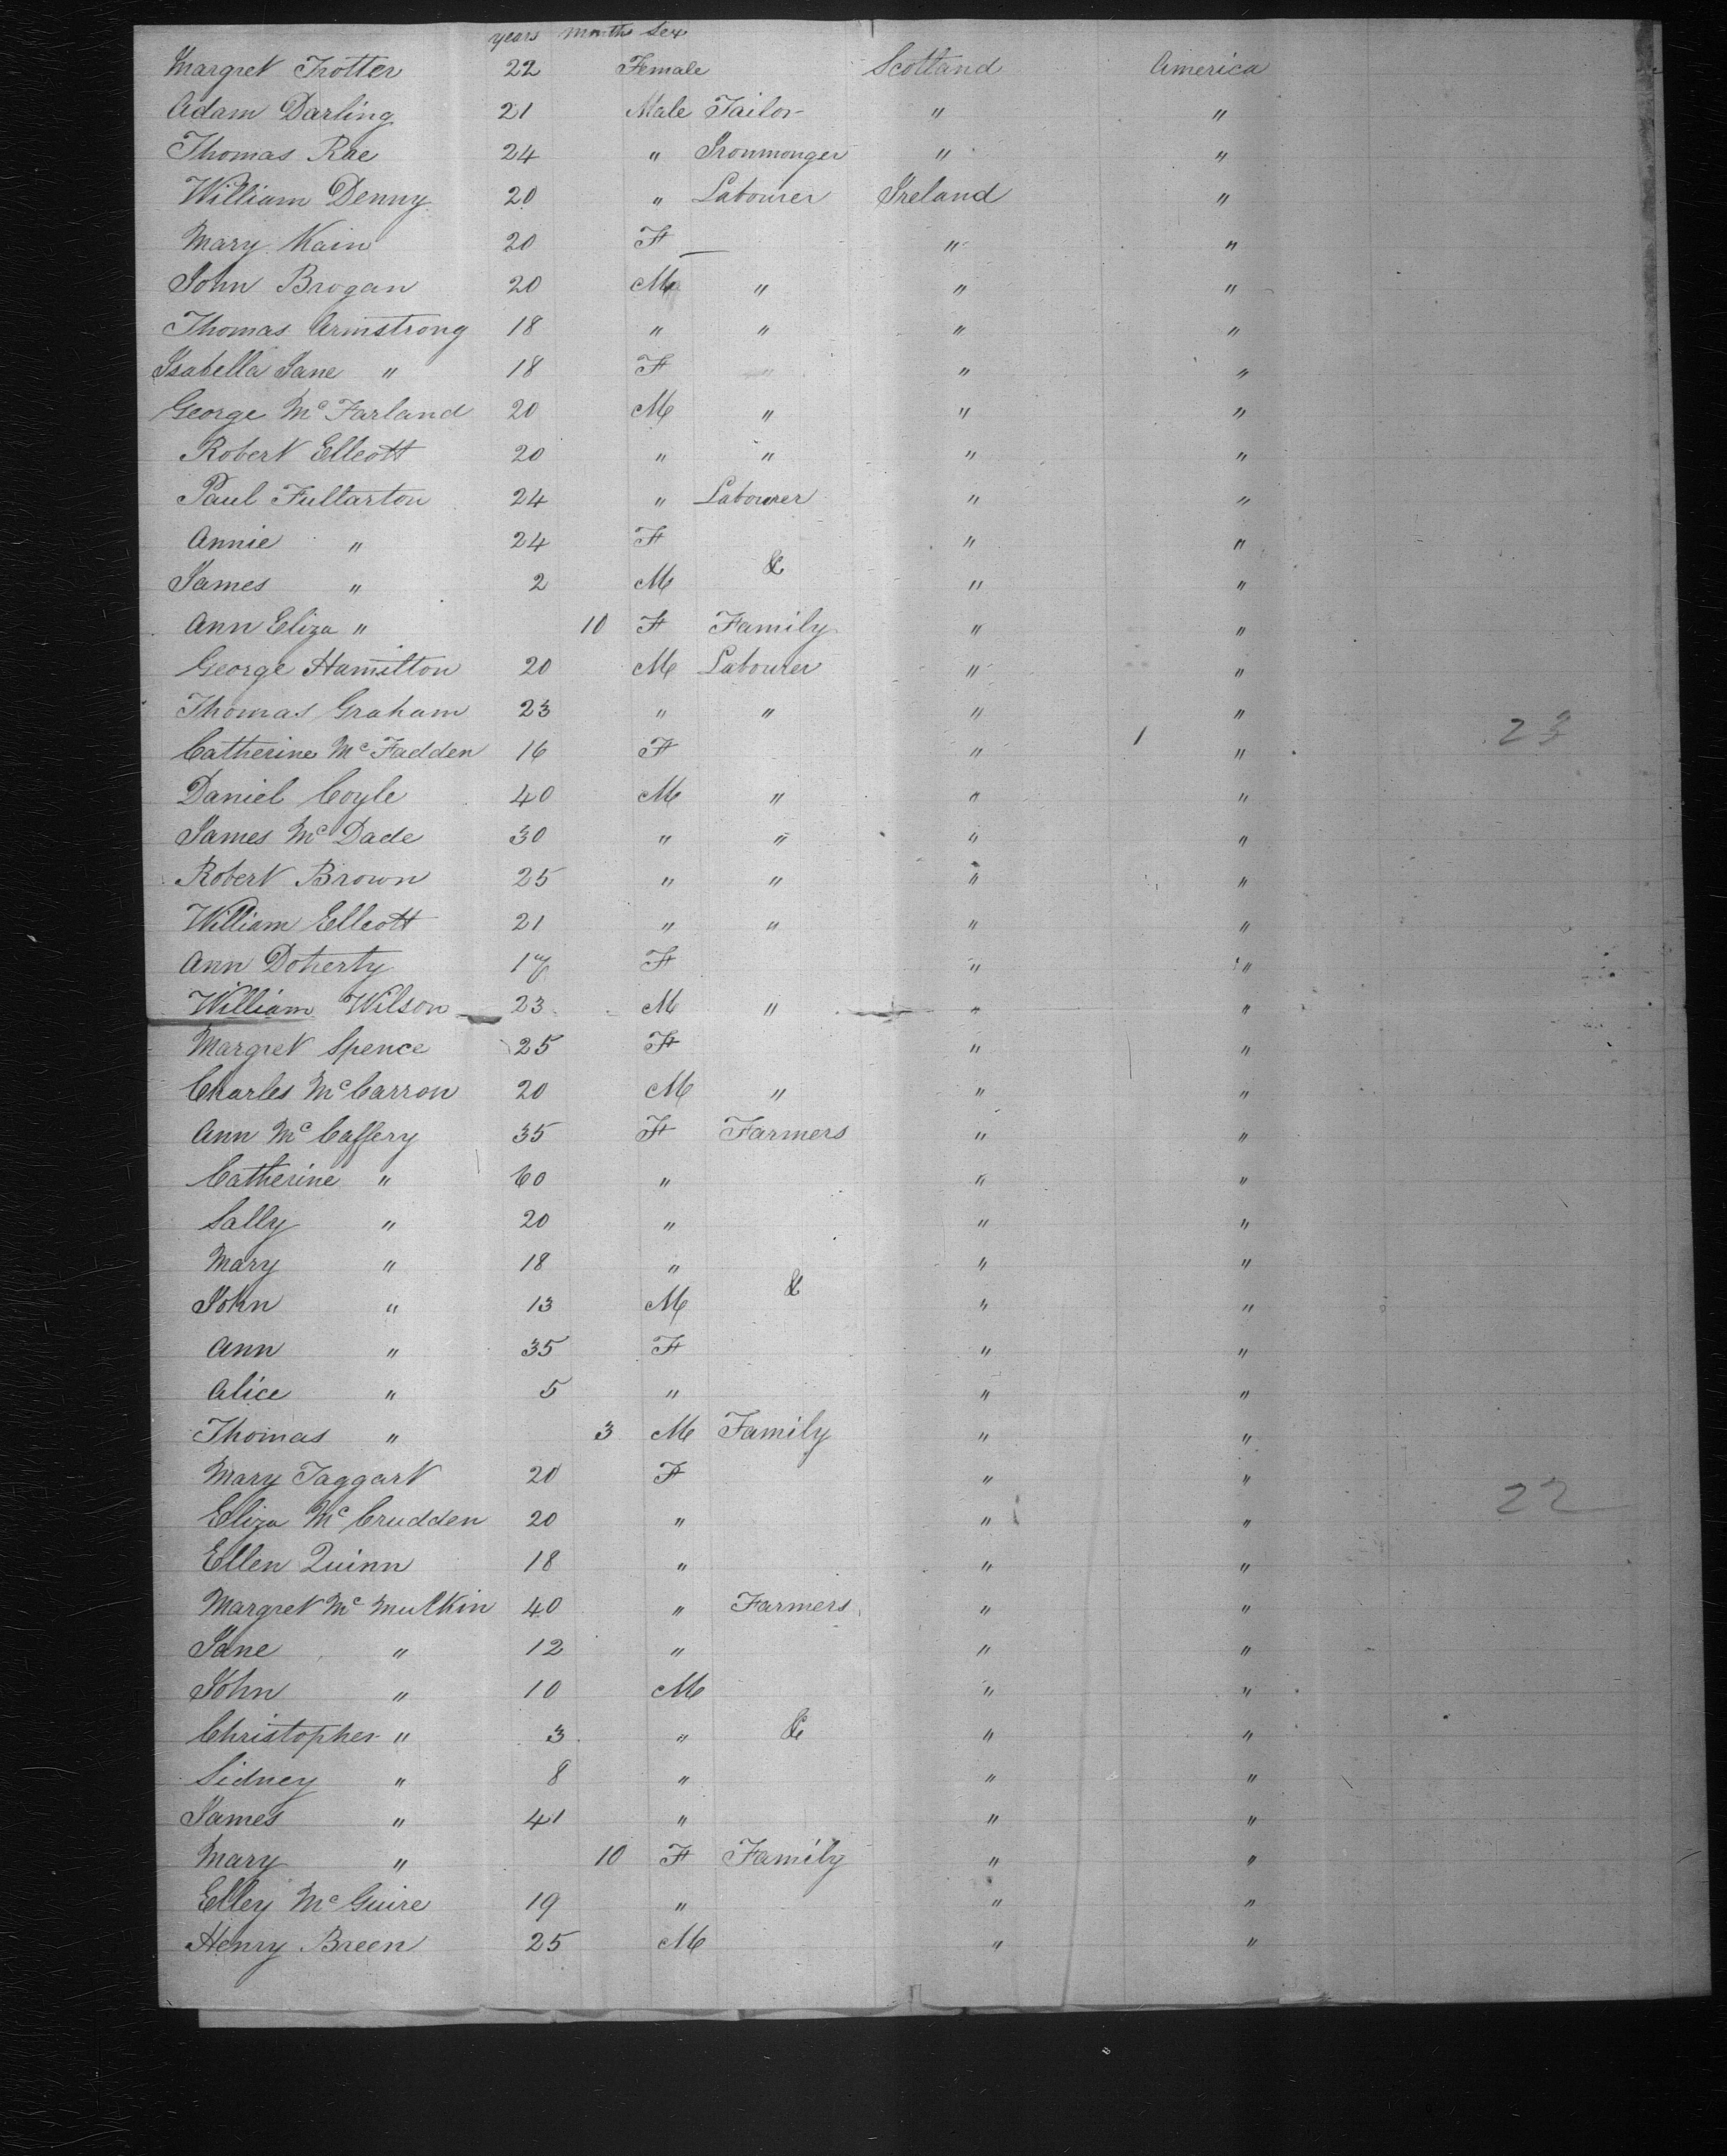 years months sex
Margret Trotter 22 Female Scotland America
Adam Darling 21 Male Tailor " "
Thomas Rae 24 " Ironmonger " "
William Denny 20 " Labourer Ireland "
Mary Kain 20 F — " "
John Brogan 20 M " " "
Thomas Armstrong 18 " " " "
Isabella Jane " 18 F " " "
George Mc Farland 20 M " " "
Robert Ellcott 20 " " " "
Paul Fullarton 24 " Labourer " "
Annie " 24 F " "
&
James " 2 M " "
Ann Eliza " 10 F Family " "
George Hamilton 20 M Labourer " "
Thomas Graham 23 " " " "
Catherine Mc Fadden 16 F " " 23
Daniel Coyle 40 M " " "
James Mc Dade 30 " " " "
Robert Brown 25 " " " "
William Ellcott 21 " " " "
Ann Doherty 17 F " "
William Wilson 23 M " " "
Margret Spence 25 F " "
Charles Mc Carron 20 M " " "
Ann Mc Caffery 35 F Farmers " "
Catherine " 60 " " "
Sally " 20 " " "
Mary " 18 " " "
&
John " 13 M " "
Ann " 35 F " "
Alice " 5 " " "
Thomas " 3 M Family " "
Mary Taggart 20 F " "
Eliza Mc Crudden 20 " " " 22
Ellen Quinn 18 " " "
Margret Mc Mulkin 40 " Farmers " "
Jane " 12 " " "
John " 10 M " "
Christopher " 3 " & " "
Sidney " 8 " " "
James " 41 " " "
Mary " 10 F Family " "
Elley Mc Guire 19 " " "
Henry Breen 25 M " "